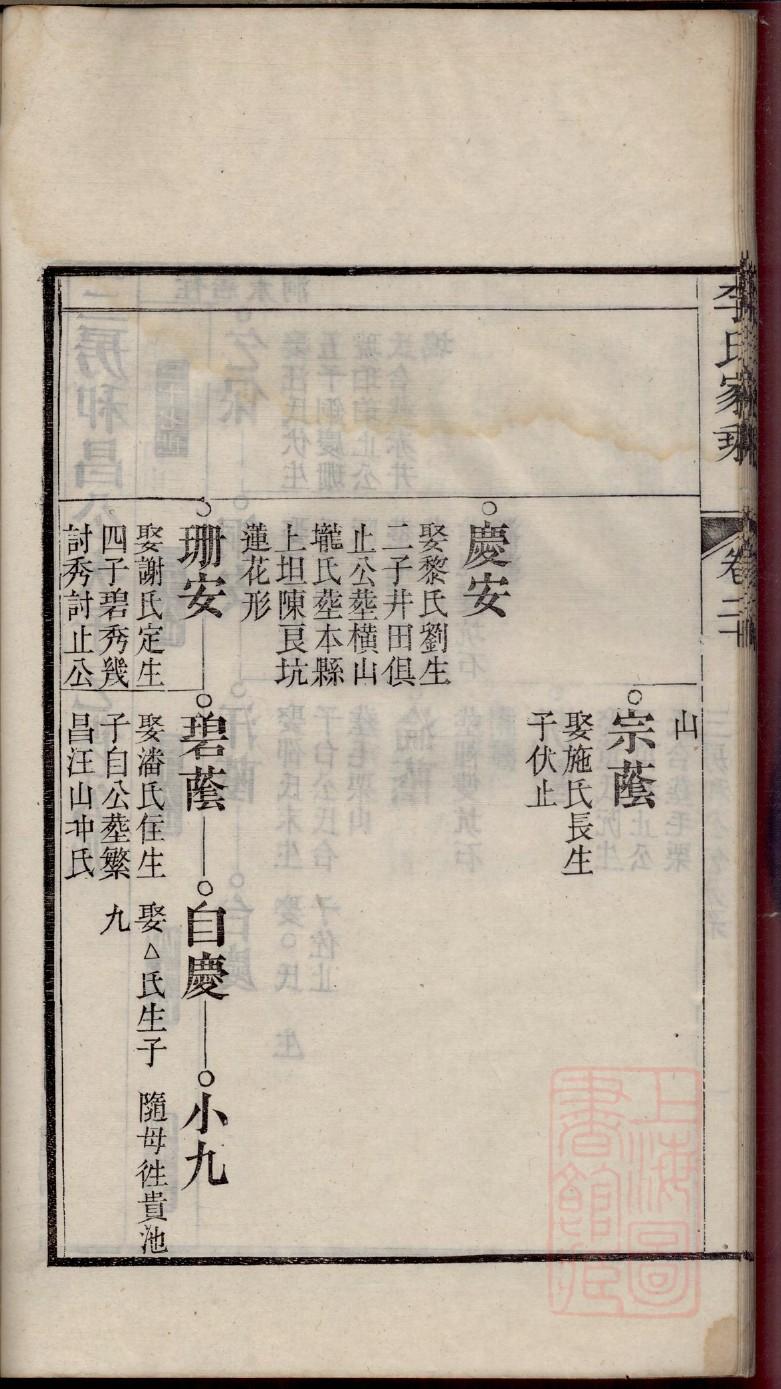 李氏家乘
卷二
山
宗蔭
娶施氏長生
子伏止
慶安
娶黎氏劉生
二子井田俱
止公塟橫山
壠氏塟本縣
上坦陳良坑
蓮花形
珊安
娶謝氏定生
四子碧秀幾
討秀討止公
碧蔭
娶潘氏住生
子自公塟繁
昌汪山冲氏
自慶
娶△氏生子
九
小九
隨母徃貴池
上海圖
書館藏